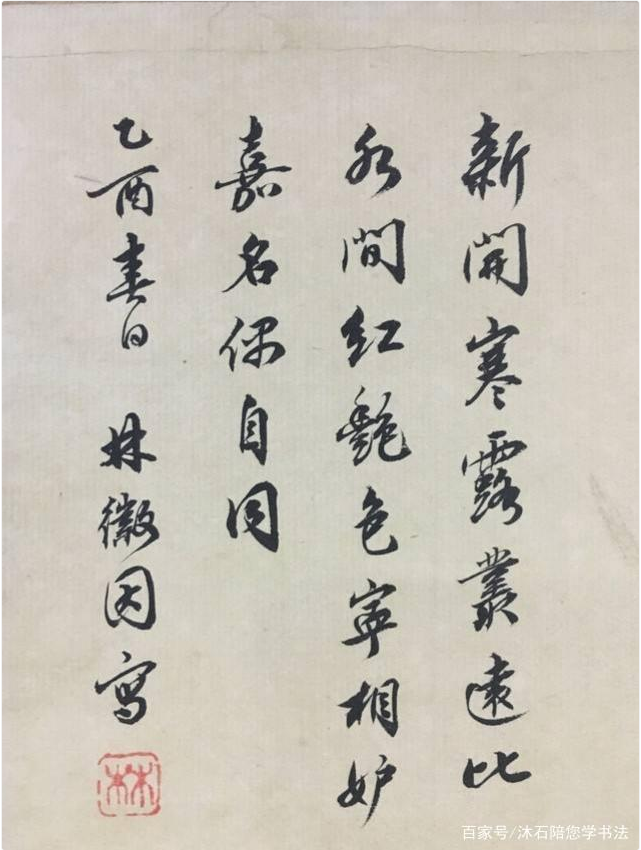 新開寒露叢遠比
水間紅艶色寧相妒
嘉名偶自同
乙酉春日 林徽因寫
林
百家号/沐石陪您学书法